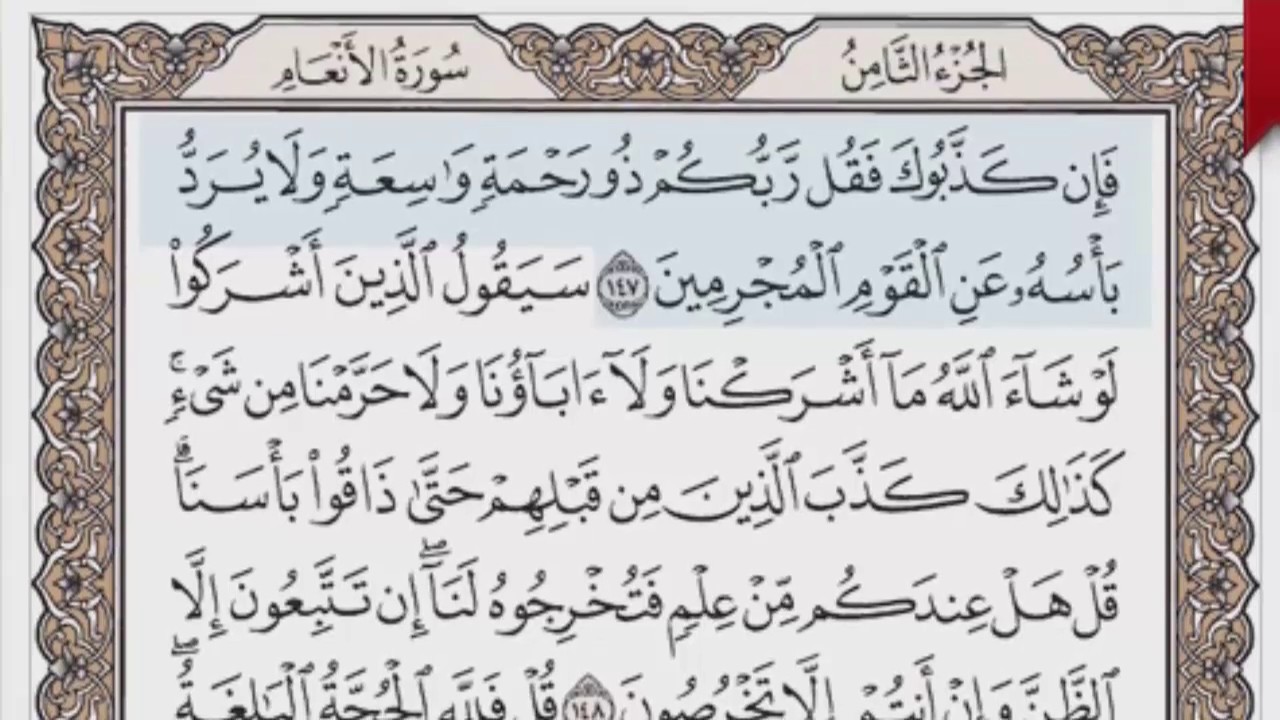 الجُزْءُ الثَّامِنُ
سُورَةُ الأَنْعَامِ
فَإِن كَذَّبُوكَ فَقُل رَّبُّكُمْ ذُو رَحْمَةٍ وَٰسِعَةٍ وَلَا يُرَدُّ
بَأْسُهُۥ عَنِ ٱلْقَوْمِ ٱلْمُجْرِمِينَ ١٤٧ سَيَقُولُ ٱلَّذِينَ أَشْرَكُوا۟
لَوْ شَآءَ ٱللَّهُ مَآ أَشْرَكْنَا وَلَآ ءَابَآؤُنَا وَلَا حَرَّمْنَا مِن شَىْءٍ ۚ
كَذَٰلِكَ كَذَّبَ ٱلَّذِينَ مِن قَبْلِهِمْ حَتَّىٰ ذَاقُوا۟ بَأْسَنَا ۗ
قُلْ هَلْ عِندَكُم مِّنْ عِلْمٍ فَتُخْرِجُوهُ لَنَآ ۖ إِن تَتَّبِعُونَ إِلَّا
ٱلظَّنَّ وَإِنْ أَنتُمْ إِلَّا تَخْرُصُونَ ١٤٨ قُلْ فَلِلَّهِ ٱلْحُجَّةُ ٱلْبَٰلِغَةُ ۖ